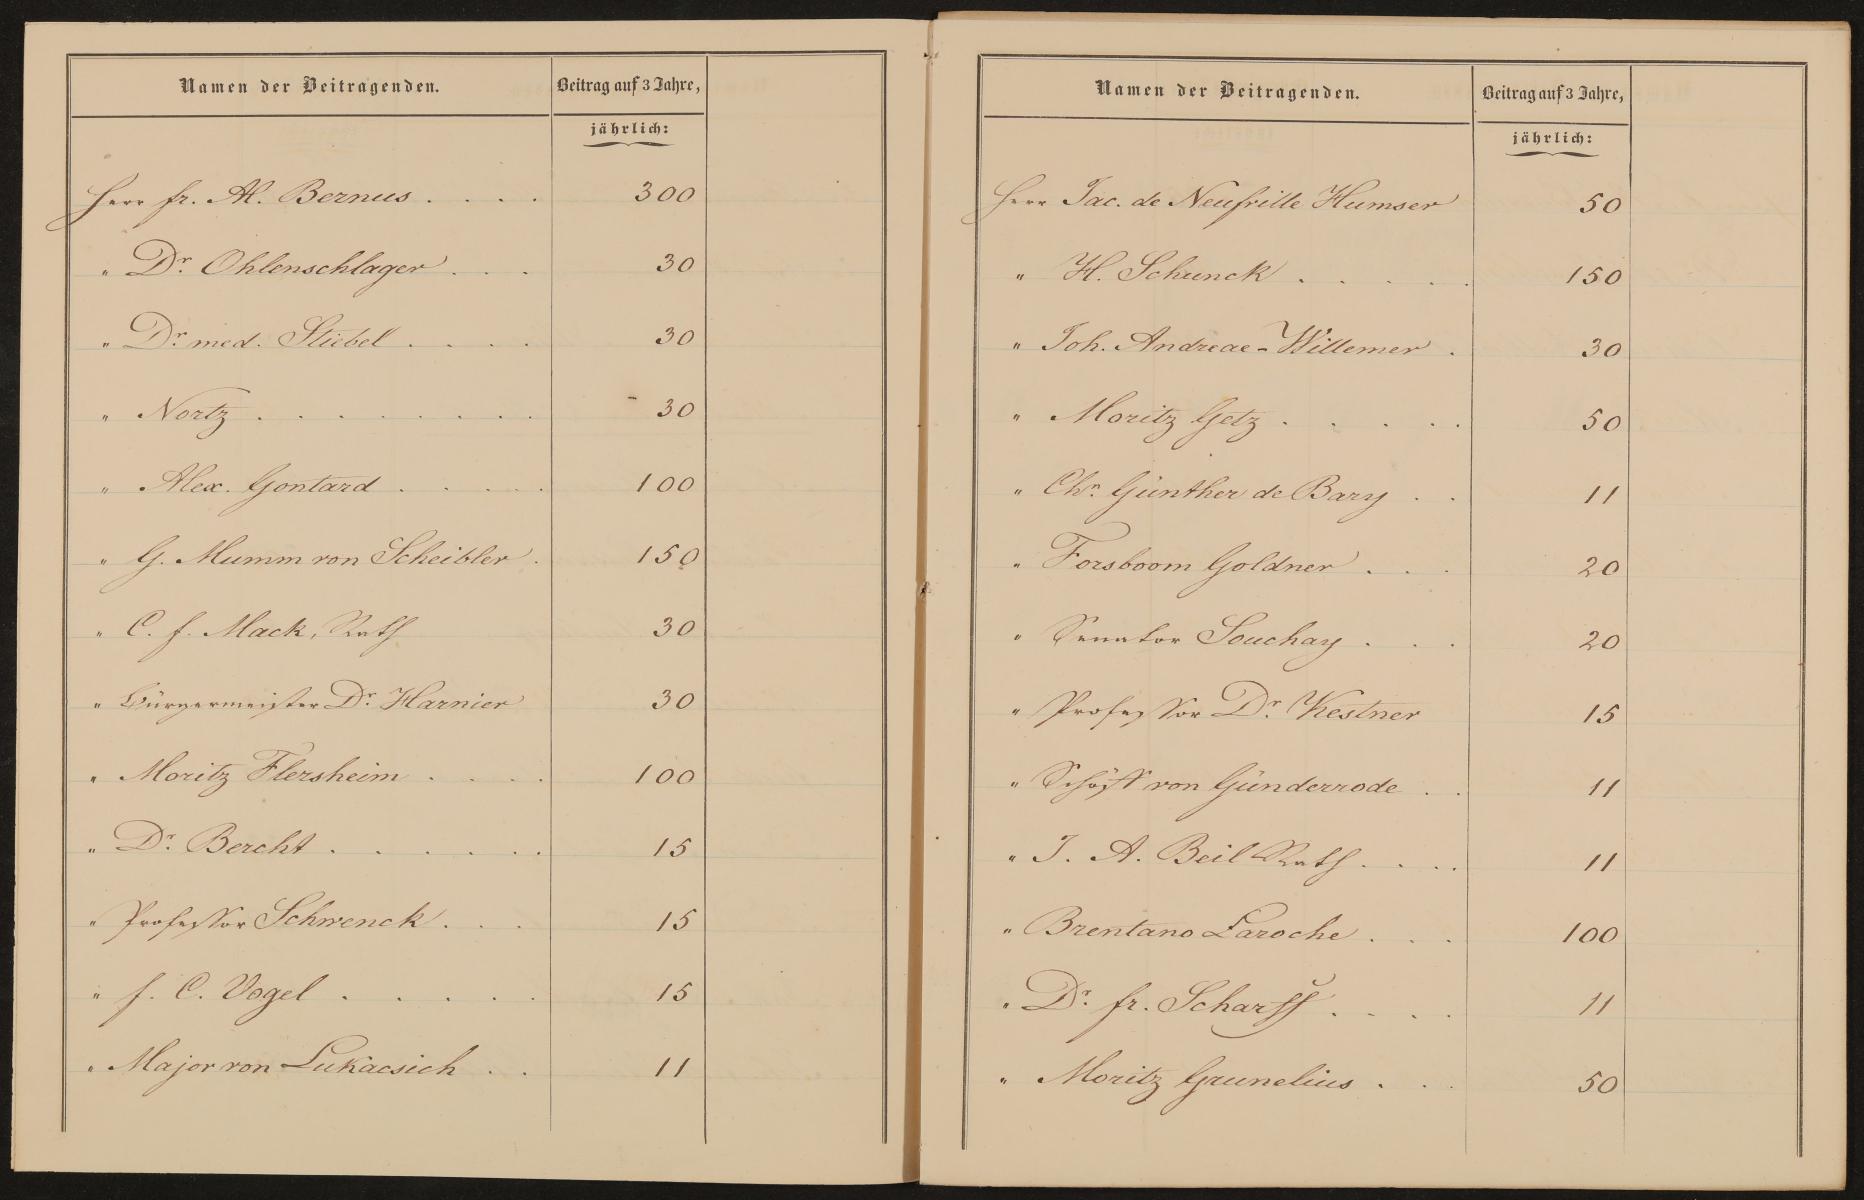 Namen der Beitragenden. Beitrag auf 3 Jahre,
jährlich:
Herr Fr. Al. Bernus . . . . 300
" Dr. Ohlenschlager . . . 30
" Dr. med. Stiebel . . . . 30
" Nortz . . . . . . . . 30
" Alex. Gontard . . . . . 100
" G. Mumm von Scheibler . 150
" C. F. Mack, Rath 30
" Bürgermeister Dr. Harnier 30
" Moritz Flersheim . . . . 100
" Dr. Bercht . . . . . . 15
" Professor Schwenck . . . 15
" F. C. Vogel . . . . . 15
" Major von Lukacsich . . 11
Namen der Beitragenden. Beitrag auf 3 Jahre,
jährlich:
Herr Jac. de Neufville Humser 50
" H. Schunck . . . . . 150
" Joh. Andreae-Willemer . 30
" Moritz Getz . . . . . 50
" Chr. Günther de Bary . . 11
" Forsboom Goldner . . . 20
" Senator Souchay . . . 20
" Professor Dr. Kestner 15
" Schöff von Günderrode . . 11
" J. A. Beil Rath . . . . 11
" Brentano Laroche . . . 100
" Dr. Fr. Scharff . . . . 11
" Moritz Grunelius . . . 50